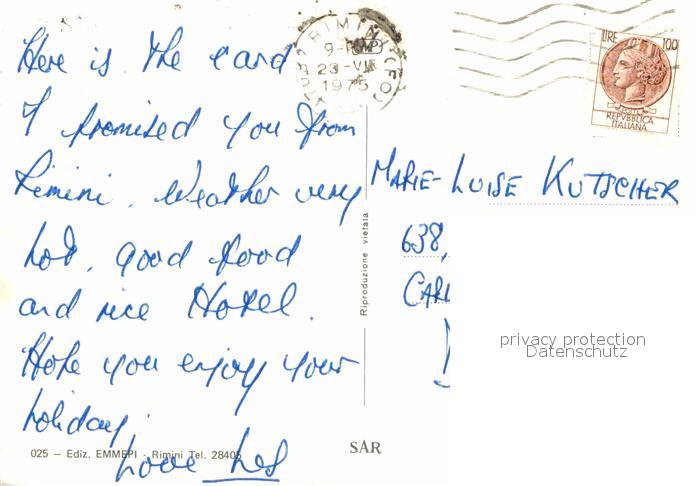 Here is the card
I promised you from
Rimini. Weather very
hot, good food
and nice Hotel.
Hope you enjoy your
holiday.
Love
025 — Ediz. EMMEPI - Rimini Tel. 28405
SAR
Riproduzione vietata
RIMINI (FO)
23-VII
1975
LIRE 100
POSTE
REPVBBLICA
ITALIANA
MARIE-LUISE KUTSCHER
638,
CARL
privacy protection
Datenschutz